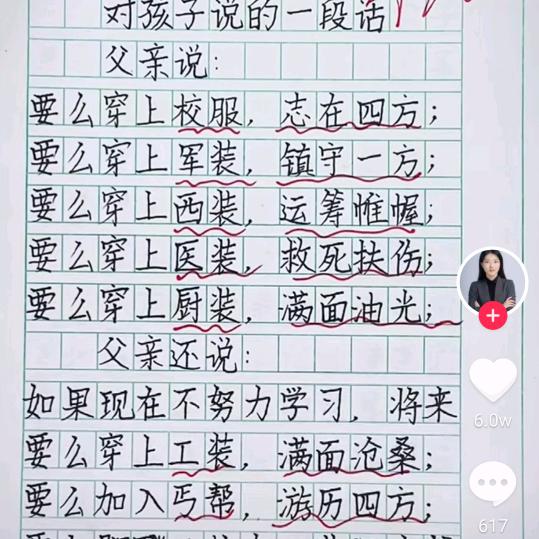 对孩子说的一段话
父亲说:
要么穿上校服,志在四方;
要么穿上军装,镇守一方;
要么穿上西装,运筹帷幄;
要么穿上医装,救死扶伤;
要么穿上厨装,满面油光;
父亲还说:
如果现在不努力学习,将来
要么穿上工装,满面沧桑;
要么加入丐帮,游历四方;
6.0w
617